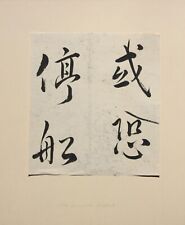 或恐
停船